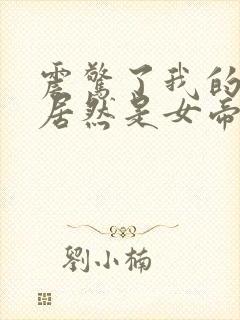 震驚了我的
居然是女帝
劉小楠